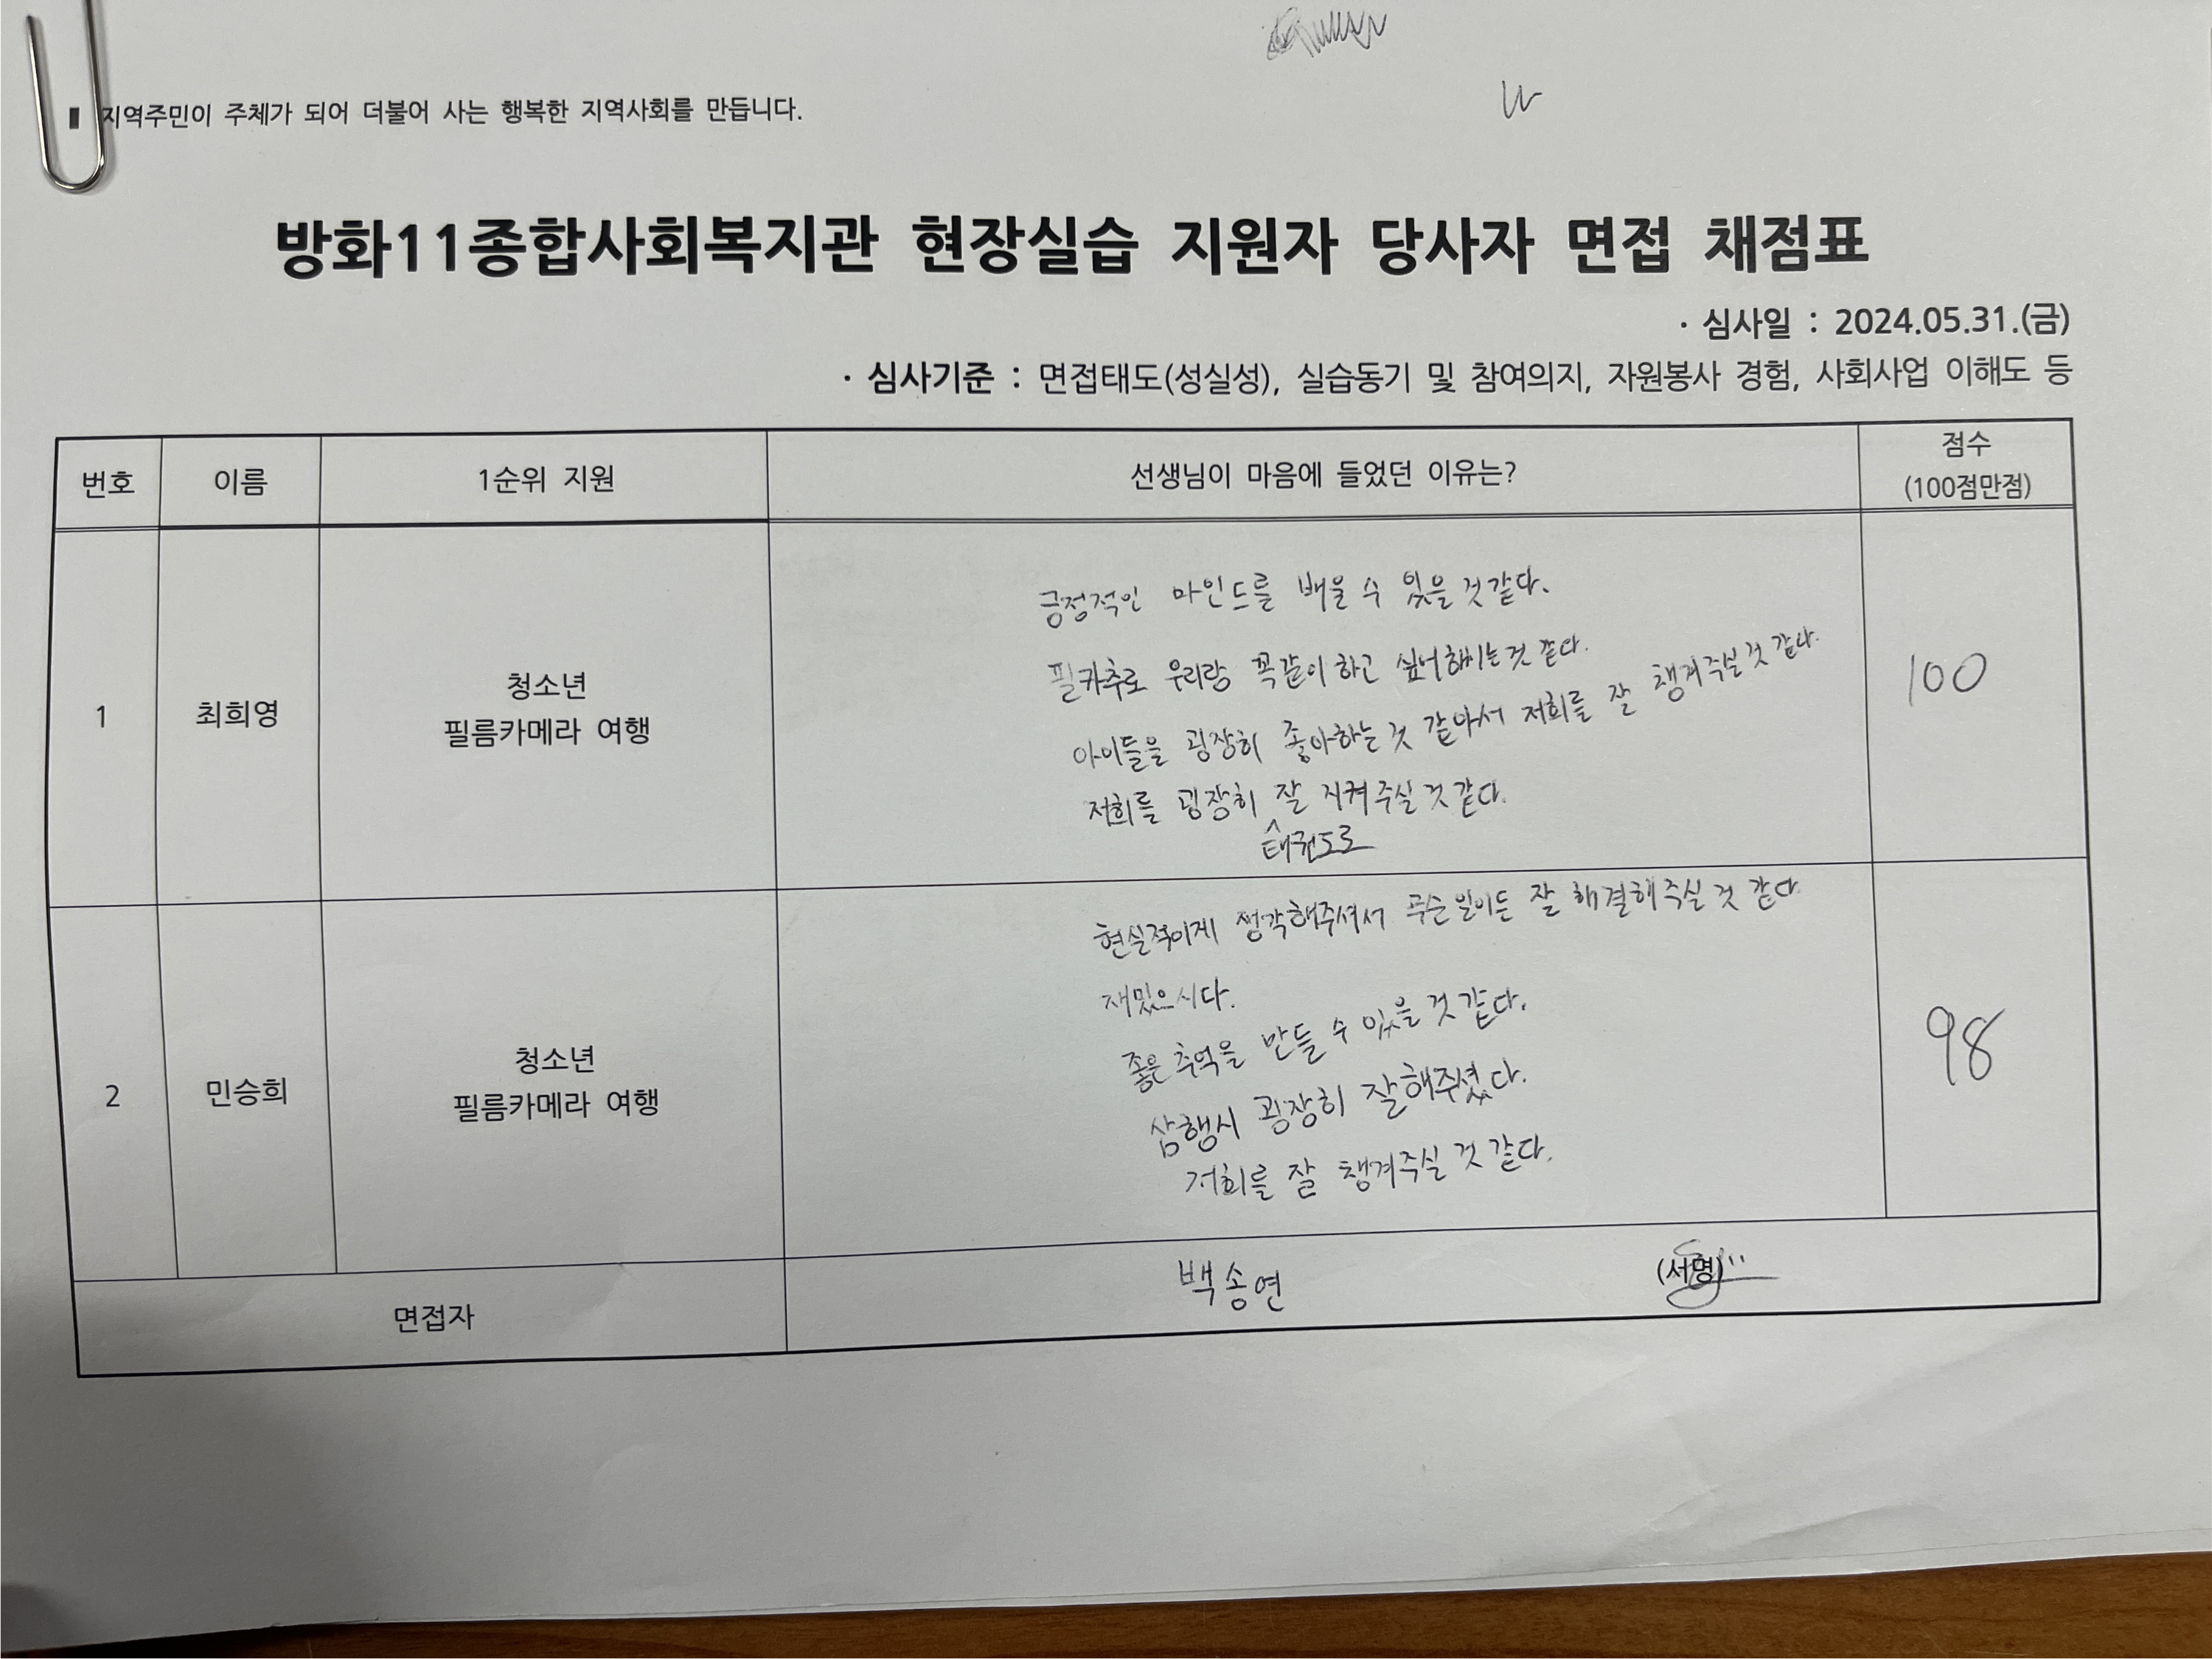 지역주민이 주체가 되어 더불어 사는 행복한 지역사회를 만듭니다.
방화11종합사회복지관 현장실습 지원자 당사자 면접 채점표
· 심사일 : 2024.05.31.(금)
· 심사기준 : 면접태도(성실성), 실습동기 및 참여의지, 자원봉사 경험, 사회사업 이해도 등
번호 이름 1순위 지원 선생님이 마음에 들었던 이유는? 점수
(100점만점)
1 최희영 청소년
필름카메라 여행
긍정적인 마인드를 배울 수 있을 것 같다.
필카추로 우리랑 꼭 같이 하고 싶어하시는 것 같다.
아이들을 굉장히 좋아하는 것 같아서 저희를 잘 챙겨주실 것 같다.
저희를 굉장히 잘 지켜주실 것 같다.
태권도로
100
2 민승희 청소년
필름카메라 여행
현실적이게 생각해주셔서 무슨일이든 잘 해결해주실 것 같다
재밌으시다.
좋은 추억을 만들 수 있을 것 같다.
삼행시 굉장히 잘해주셨다.
저희를 잘 챙겨주실 것 같다.
98
면접자 백송연 (서명)